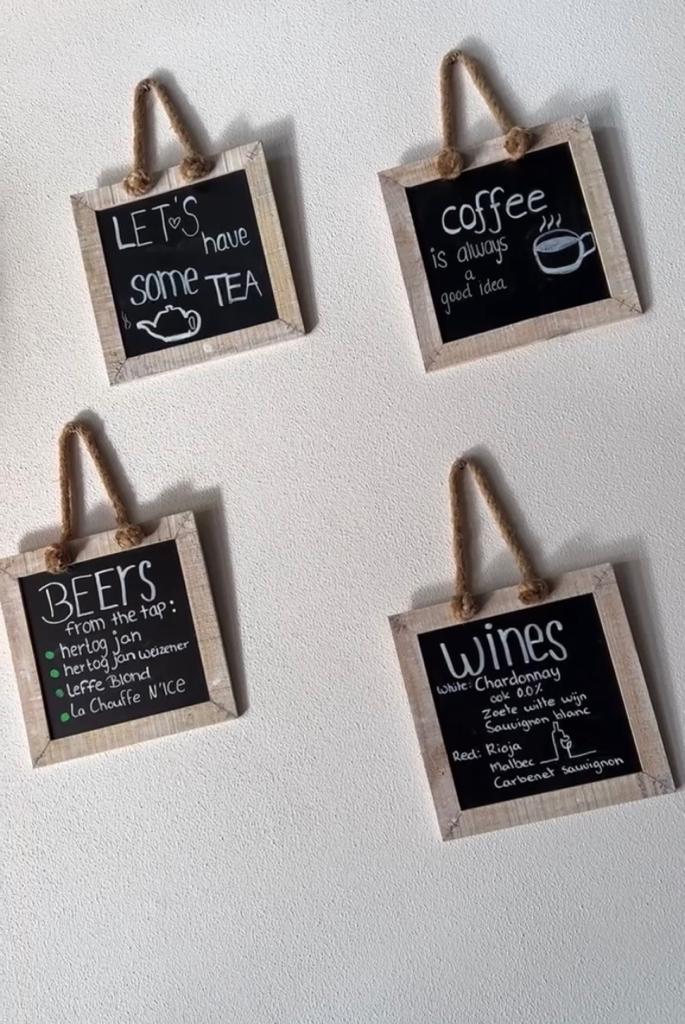 LET'S
have
some TEA
coffee
is always
a
good idea
BEErs
from the tap:
hertog jan
hertog jan weizener
Leffe Blond
La Chouffe N'ICE
wines
White: Chardonnay
ook 0.0%
Zoete witte wijn
Sauvignon blanc
Red: Rioja
Malbec
Carbenet sauvignon